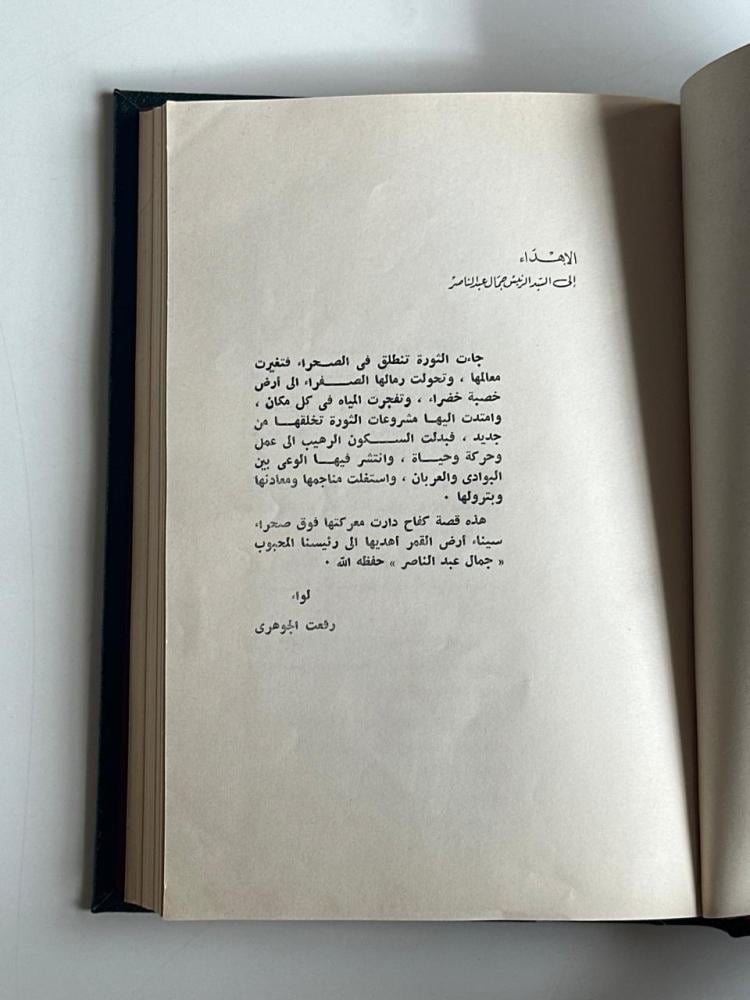 الإهـــداء
إلى السيد الرئيس جمال عبد الناصر
جاءت الثورة تنطلق فى الصـحراء فتغيرت
معالمها ، وتحولت رمالها الصــــفراء الى أرض
خصبة خضراء ، وتفجرت المياه فى كل مكان ،
وامتدت اليهـا مشروعات الثورة تخلقهــا من
جديد ، فبدلت الســـكون الرهيب الى عمل
وحركة وحيــاة ، وانتشر فيهـا الوعى بين
البوادى والعربان ، واستغلت مناجمها ومعادنها
وبترولها ٠
هذه قصة كفاح دارت معركتها فوق صحراء
سيناء أرض القمر أهديها الى رئيسنا المحبوب
« جمال عبد الناصر » حفظه الله ٠
لواء
رفعت الجوهرى